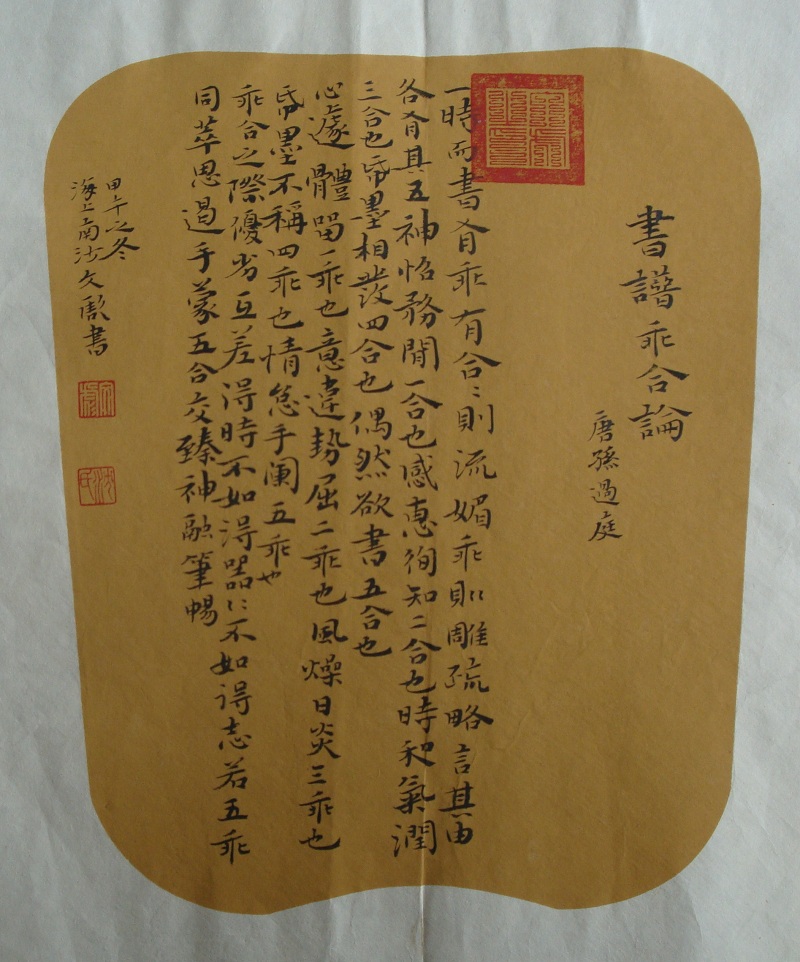 書譜乖合論
唐孫過庭
一時而書有乖有合〻則流媚乖則雕疏略言其由
各有其五神怡務閒一合也感惠徇知二合也時和氣潤
三合也帋墨相發四合也偶然欲書五合也
心遽體留一乖也意違勢屈二乖也風燥日炎三乖也
帋墨不稱四乖也情怠手闌五乖也
乖合之際優劣互差得時不如得器〻不如得志若五乖
同萃思遏手蒙五合交臻神融筆暢
甲午之冬
海上南沙文書